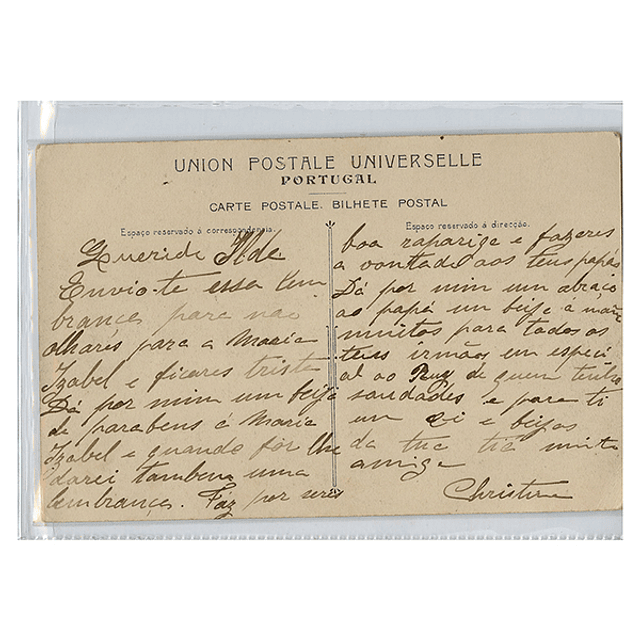 UNION POSTALE UNIVERSELLE
PORTUGAL
CARTE POSTALE. BILHETE POSTAL
Espaço reservado á correspondencia.
Querida Ilde
Envio-te essa lem
brança para não
olhares para a Maria
Izabel e ficares triste
Dá por mim um beijo
de parabens á Maria
Izabel e quando fôr lhe
darei tambem uma
lembrança. Faz por seres
Espaço reservado á direcção.
boa rapariga e fazeres
a vontade aos teus papás
Dá por mim um abraço
ao papá um beijo a mãe
muitos para todos os
teus irmãos em especi
al ao Ruy de quem tenho
saudades e para ti
um e beijos
da tua tia muito
amiga
Christina